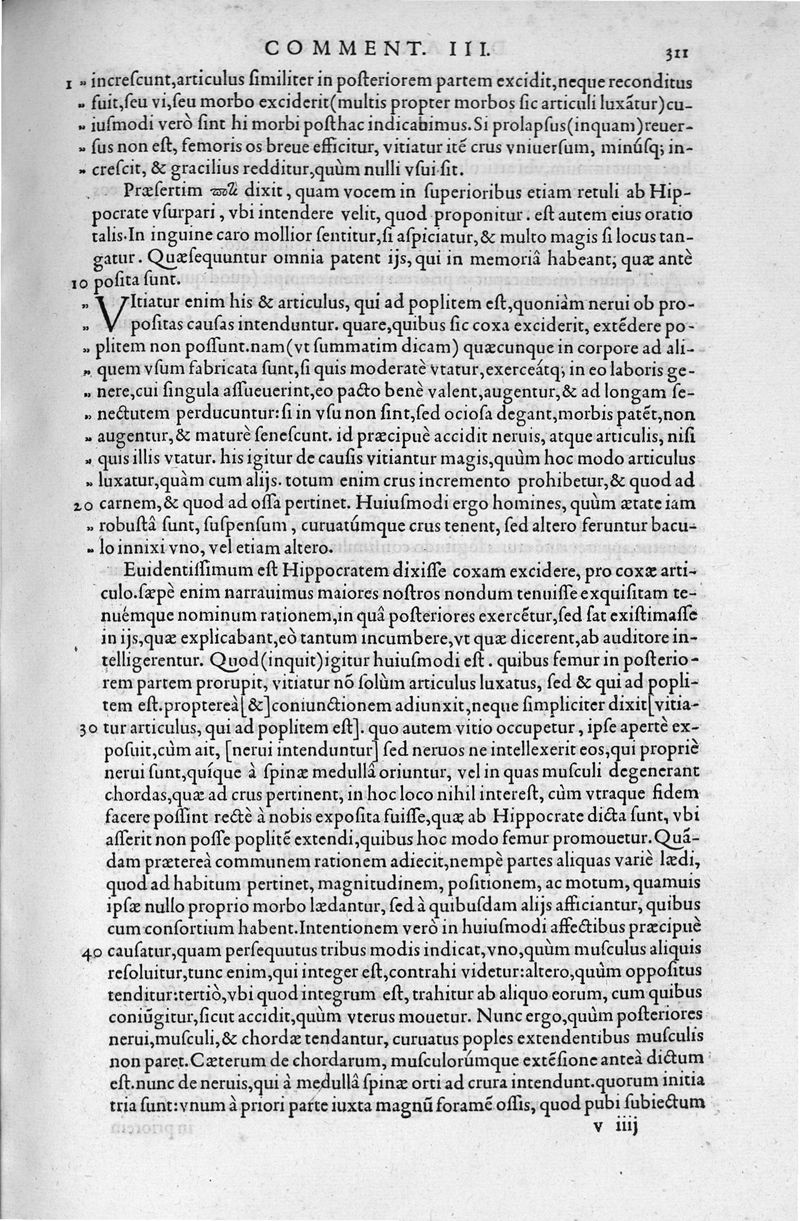 COMMENT. III. 311
1 „ increſcunt,articulus ſimiliter in poſteriorem partem excidit,neque reconditus
„ fuit,ſeu vi,ſeu morbo exciderit(multis propter morbos ſic articuli luxãtur)cu-
„ iuſmodi verò ſint hi morbi poſthac indicabimus.Si prolapſus(inquam)reuer-
„ ſus non eſt, femoris os breue efficitur, vitiatur itẽ crus vniuerſum, minúſq; in-
„ creſcit, & gracilius redditur,quùm nulli vſui ſit.
Præſertim dixit, quam vocem in ſuperioribus etiam retuli ab Hip-
pocrate vſurpari, vbi intendere velit, quod proponitur. eſt autem eius oratio
talis.In inguine caro mollior ſentitur,ſi aſpiciatur,& multo magis ſi locus tan-
gatur. Quæſequuntur omnia patent ijs, qui in memoriâ habeant, quæ antè
10 poſita ſunt.
„ VItiatur enim his & articulus, qui ad poplitem eſt,quoniàm nerui ob pro-
„ poſitas cauſas intenduntur. quare,quibus ſic coxa exciderit, extẽdere po-
„ plitem non poſſunt.nam(vt ſummatim dicam) quæcunque in corpore ad ali-
„ quem vſum fabricata ſunt,ſi quis moderatè vtatur,exerceátq; in eo laboris ge-
„ nere,cui ſingula aſſueuerint,eo pacto benè valent,augentur,& ad longam ſe-
„ nectutem perducuntur:ſi in vſu non ſint,ſed ocioſa degant,morbis patẽt,non
„ augentur,& maturè ſeneſcunt. id præcipuè accidit neruis, atque articulis, niſi
„ quis illis vtatur. his igitur de cauſis vitiantur magis,quùm hoc modo articulus
„ luxatur,quàm cum alijs. totum enim crus incremento prohibetur,& quod ad
20 carnem,& quod ad oſſa pertinet. Huiuſmodi ergo homines, quùm ætate iam
„ robuſtâ ſunt, ſuſpenſum, curuatúmque crus tenent, ſed altero feruntur bacu-
„ lo innixi vno, vel etiam altero.
Euidentiſſimum eſt Hippocratem dixiſſe coxam excidere, pro coxæ arti-
culo.ſæpè enim narrauimus maiores noſtros nondum tenuiſſe exquiſitam te-
nuémque nominum rationem,in quâ poſteriores exercẽtur,ſed ſat exiſtimaſſe
in ijs,quæ explicabant,eò tantum incumbere,vt quæ dicerent,ab auditore in-
telligerentur. Quod(inquit)igitur huiuſmodi eſt. quibus femur in poſterio-
rem partem prorupit, vitiatur nõ ſolùm articulus luxatus, ſed & qui ad popli-
tem eſt.proptereà[&]coniunctionem adiunxit,neque ſimpliciter dixit[vitia-
30 tur articulus, qui ad poplitem eſt]. quo autem vitio occupetur, ipſe apertè ex-
poſuit,cùm ait, [nerui intenduntur] ſed neruos ne intellexerit eos,qui propriè
nerui ſunt,quíque à ſpinæ medullâ oriuntur, vel in quas muſculi degenerant
chordas,quæ ad crus pertinent, in hoc loco nihil intereſt, cùm vtraque fidem
facere poſſint rectè à nobis expoſita fuiſſe,quæ ab Hippocrate dicta ſunt, vbi
aſſerit non poſſe poplitẽ extendi,quibus hoc modo femur promouetur.Quã-
dam prætereà communem rationem adiecit,nempè partes aliquas variè lædi,
quod ad habitum pertinet, magnitudinem, poſitionem, ac motum, quamuis
ipſæ nullo proprio morbo lædantur, ſed à quibuſdam alijs afficiantur, quibus
cum conſortium habent.Intentionem verò in huiuſmodi affectibus præcipuè
40 cauſatur,quam perſequutus tribus modis indicat,vno,quùm muſculus aliquis
reſoluitur,tunc enim,qui integer eſt,contrahi videtur:altero,quùm oppoſitus
tenditur:tertiò,vbi quod integrum eſt, trahitur ab aliquo eorum, cum quibus
coniũgitur,ſicut accidit,quùm vterus mouetur. Nunc ergo,quùm poſteriores
nerui,muſculi,& chordæ tendantur, curuatus poples extendentibus muſculis
non paret.Cæterum de chordarum, muſculorúmque extẽſione anteà dictum
eſt.nunc de neruis,qui à medullâ ſpinæ orti ad crura intendunt.quorum initia
tria ſunt:vnum à priori parte iuxta magnũ foramẽ oſſis, quod pubi ſubiectum
v iiij